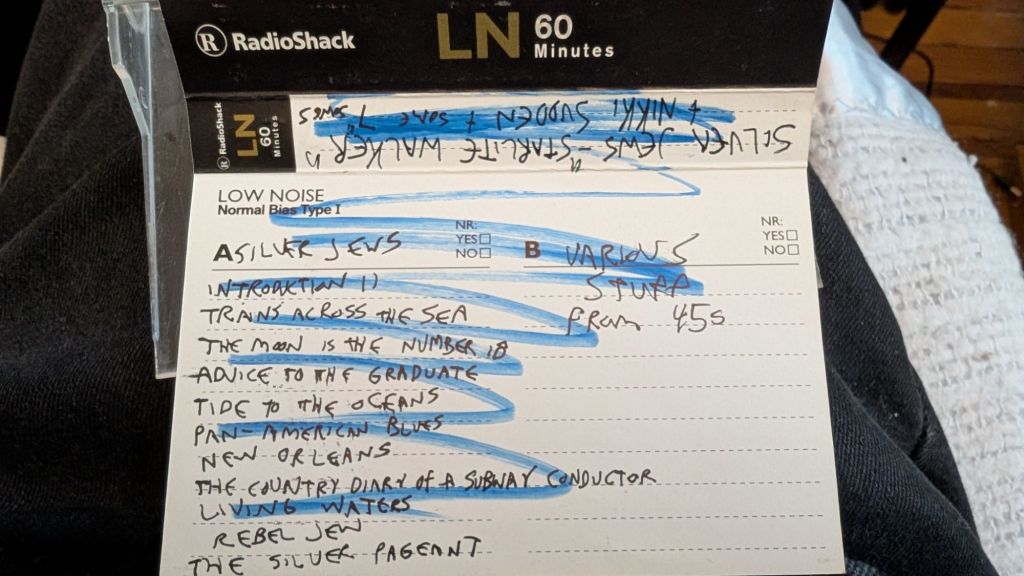 RadioShack
LN 60 Minutes
RadioShack LN 60 Minutes
SILVER JEWS - "STARLITE WALKER"
+ NIKKI SUDDEN + SOME 7" SONGS
LOW NOISE
Normal Bias Type I
A SILVER JEWS
NR:
YES
NO
INTRODKTION II
TRAINS ACROSS THE SEA
THE MOON IS THE NUMBER 18
ADVICE TO THE GRADUATE
TIDE TO THE OCEANS
PAN-AMERICAN BLUES
NEW ORLEANS
THE COUNTRY DIARY OF A SUBWAY CONDUCTOR
LIVING WATERS
REBEL JEW
THE SILVER PAGEANT
B VARIOUS
NR:
YES
NO
STUFF
FROM 45s